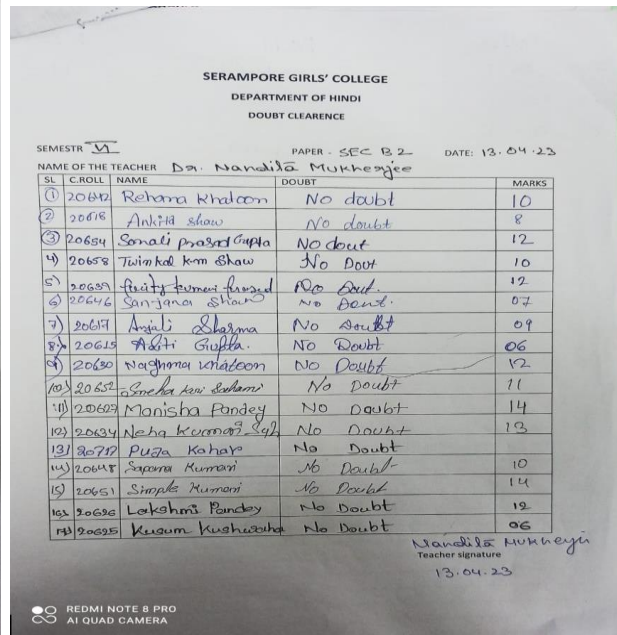 SERAMPORE GIRLS' COLLEGE
DEPARTMENT OF HINDI
DOUBT CLEARENCE
SEMESTR VI PAPER - SEC B2 DATE: 13.04.23
NAME OF THE TEACHER Dr. Nandita Mukherjee
SL C.ROLL NAME DOUBT MARKS
1 20642 Rehana Khatoon No doubt 10
2 20618 Ankita Shaw No doubt 8
3 20654 Sonali prasad Gupta No dout 12
4) 20658 Twinkal km Shaw No Dout 10
5) 20639 kumari No Dout. 12
6) 20646 Sanjana Shaw No Dout. 07
7) 20617 Anjali Sharma No Doubt 09
8) 20615 Aditi Gupta. No Doubt 06
9) 20630 Naghma Khatoon No Doubt 12
10) 20652 Sneha No Doubt 11
11) 20627 Manisha Pandey No Doubt 14
12) 20634 Neha Kumari No Doubt 13
13) 20717 Puja Kahar No Doubt
14) 20648 Kumari No Doubt 10
15) 20651 Simple Kumari No Doubt 14
16) 20626 Lakshmi Pandey No Doubt 12
17) 20625 Kusum Kushwaha No Doubt 06
Nandita Mukherji
Teacher signature
13.04.23
REDMI NOTE 8 PRO
AI QUAD CAMERA